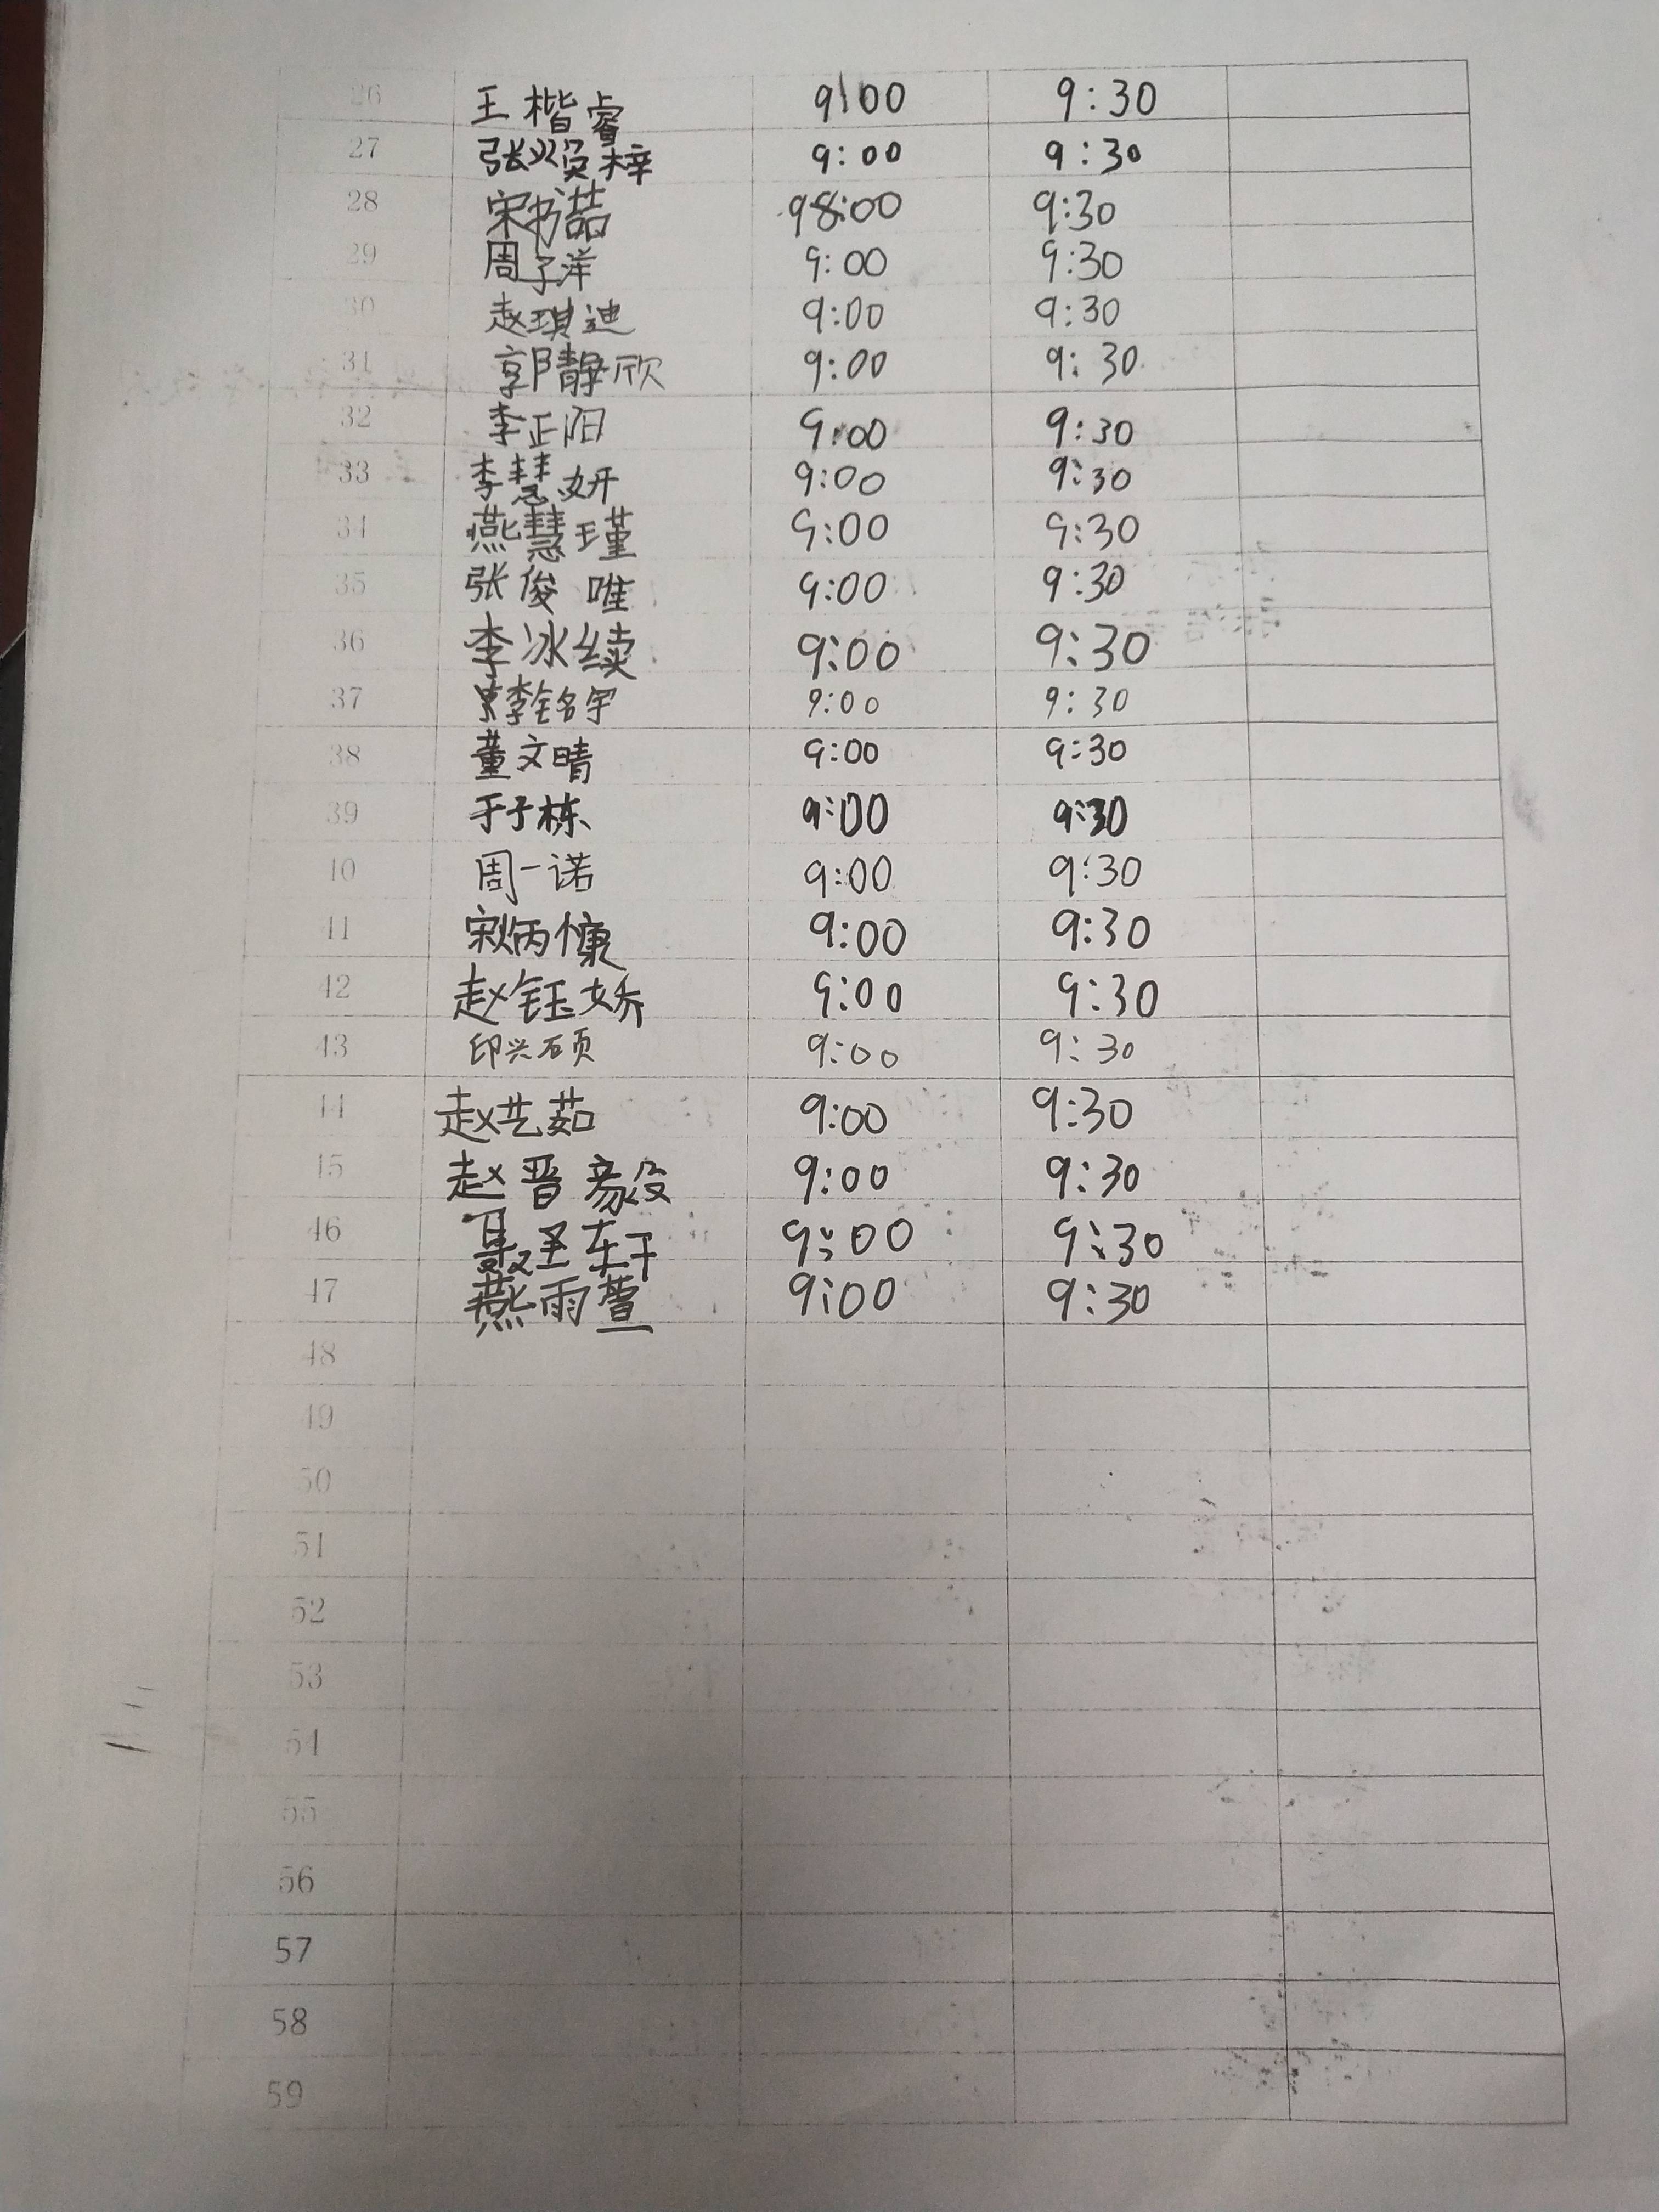 26 王楷睿 9:00 9:30
27 张焕梓 9:00 9:30
28 宋书喆 98:00 9:30
29 周子洋 9:00 9:30
30 赵琪迪 9:00 9:30
31 郭静欣 9:00 9:30
32 李正阳 9:00 9:30
33 李慧妍 9:00 9:30
34 燕慧瑾 9:00 9:30
35 张俊唯 9:00 9:30
36 李冰续 9:00 9:30
37 李铭宇 9:00 9:30
38 董文晴 9:00 9:30
39 于子栋 9:00 9:30
40 周一诺 9:00 9:30
41 宋炳慷 9:00 9:30
42 赵钰娇 9:00 9:30
43 印兴硕 9:00 9:30
44 赵艺茹 9:00 9:30
45 赵晋毅 9:00 9:30
46 聂圣轩 9:00 9:30
47 燕雨萱 9:00 9:30
48
49
50
51
52
53
54
55
56
57
58
59